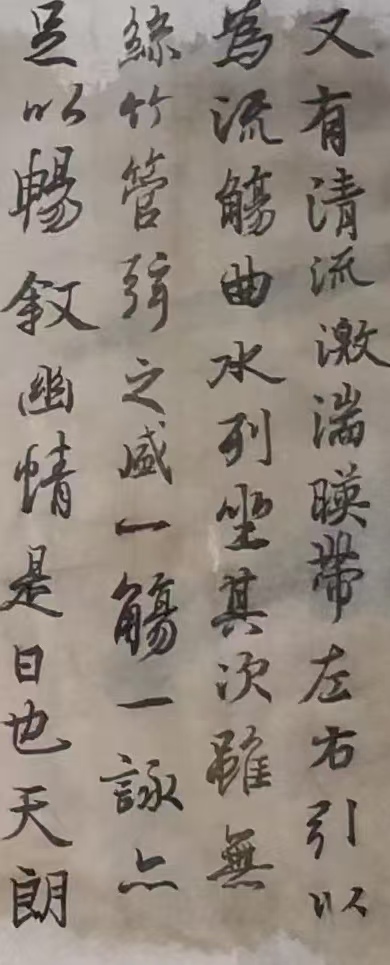 又有清流激湍暎帶左右引以
為流觴曲水列坐其次雖無
絲竹管弦之盛一觴一詠亦
足以暢叙幽情是日也天朗